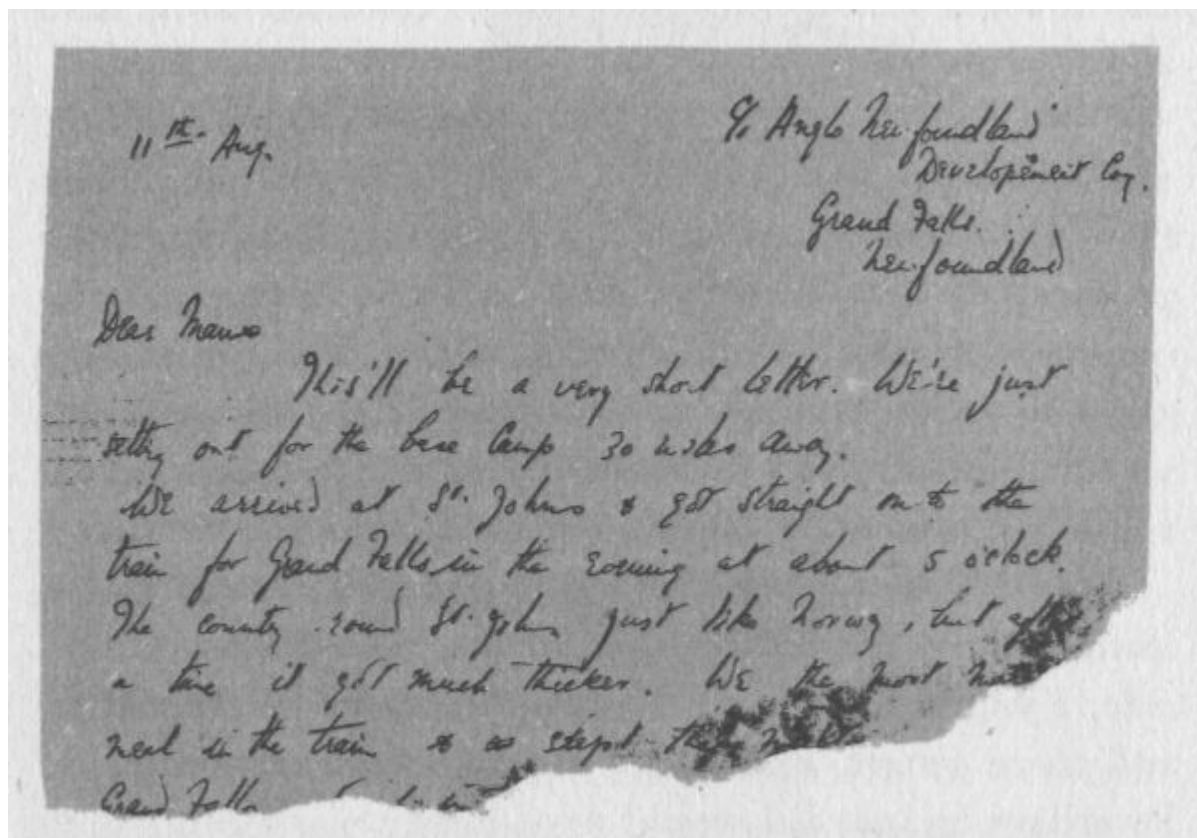 11th Aug.
c/o Anglo Newfoundland
Developement Coy.
Grand Falls.
Newfoundland
Dear Mama
This'll be a very short letter. We're just
setting out for the base Camp 30 miles away.
We arrived at St. Johns & got straight on to the
train for Grand Falls in the evening at about 5 o'clock.
The country round St. Johns just like Norway, but after
a time it got much thicker. We the most
meal in the train & so slept
Grand Falls